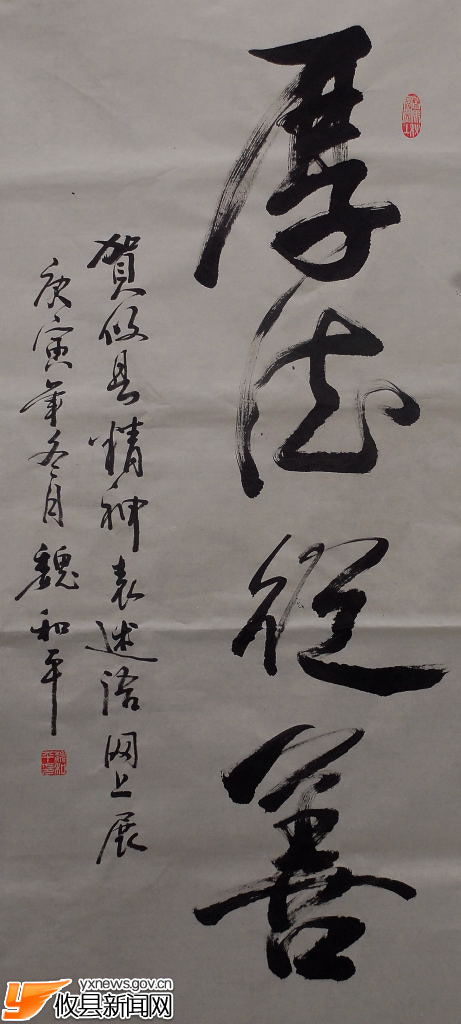 厚德從善
賀攸县情神表述语网上展
庚寅年冬月魏和平
yxnews.gov.cn
攸县新闻网